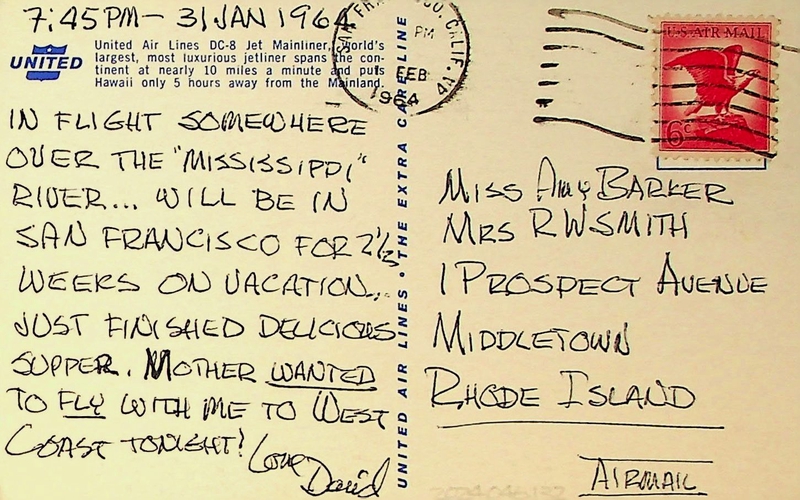 7:45PM - 31 JAN 1964
UNITED
United Air Lines DC-8 Jet Mainliner, world's
largest, most luxurious jetliner spans the con-
tinent at nearly 10 miles a minute and puts
Hawaii only 5 hours away from the Mainland.
IN FLIGHT SOMEWHERE
OVER THE "MISSISSIPPI"
RIVER... WILL BE IN
SAN FRANCISCO FOR 2 1/2
WEEKS ON VACATION..
JUST FINISHED DELICIOUS
SUPPER. MOTHER WANTED
TO FLY WITH ME TO WEST
COAST TONIGHT!
Love
David
UNITED AIR LINES • THE EXTRA CARE LINE
SAN FRANCISCO, CALIF.
PM
FEB
1964
U.S. AIR MAIL
6c
MISS AMY BARKER
MRS R W SMITH
1 PROSPECT AVENUE
MIDDLETOWN
RHODE ISLAND
AIRMAIL